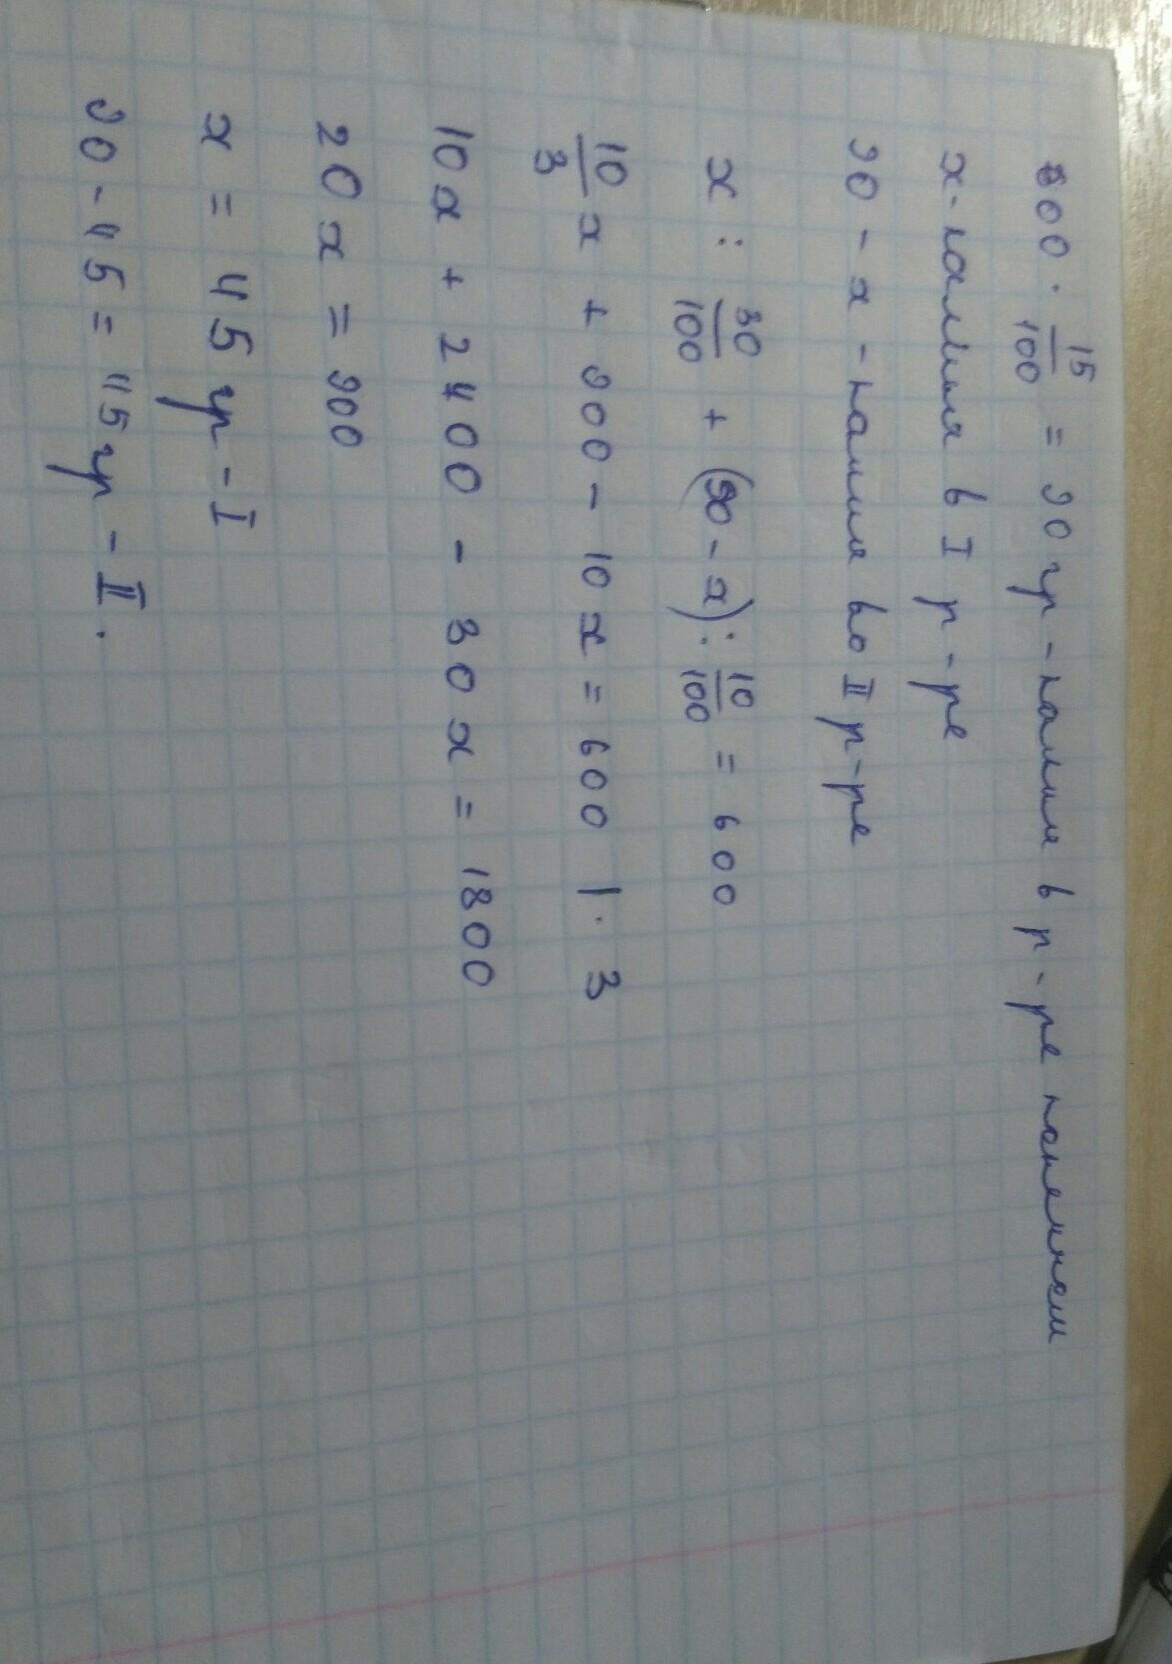 600 · 15/100 = 90 гр - калия в р-ре
x - калия в I р-ре
90 - x - калия во II р-ре
x : 30/100 + (90 - x) : 10/100 = 600
10/3 x + 900 - 10x = 600 | · 3
10x + 2400 - 30x = 1800
20x = 900
x = 45 гр - I
90 - 45 = 45 гр - II.